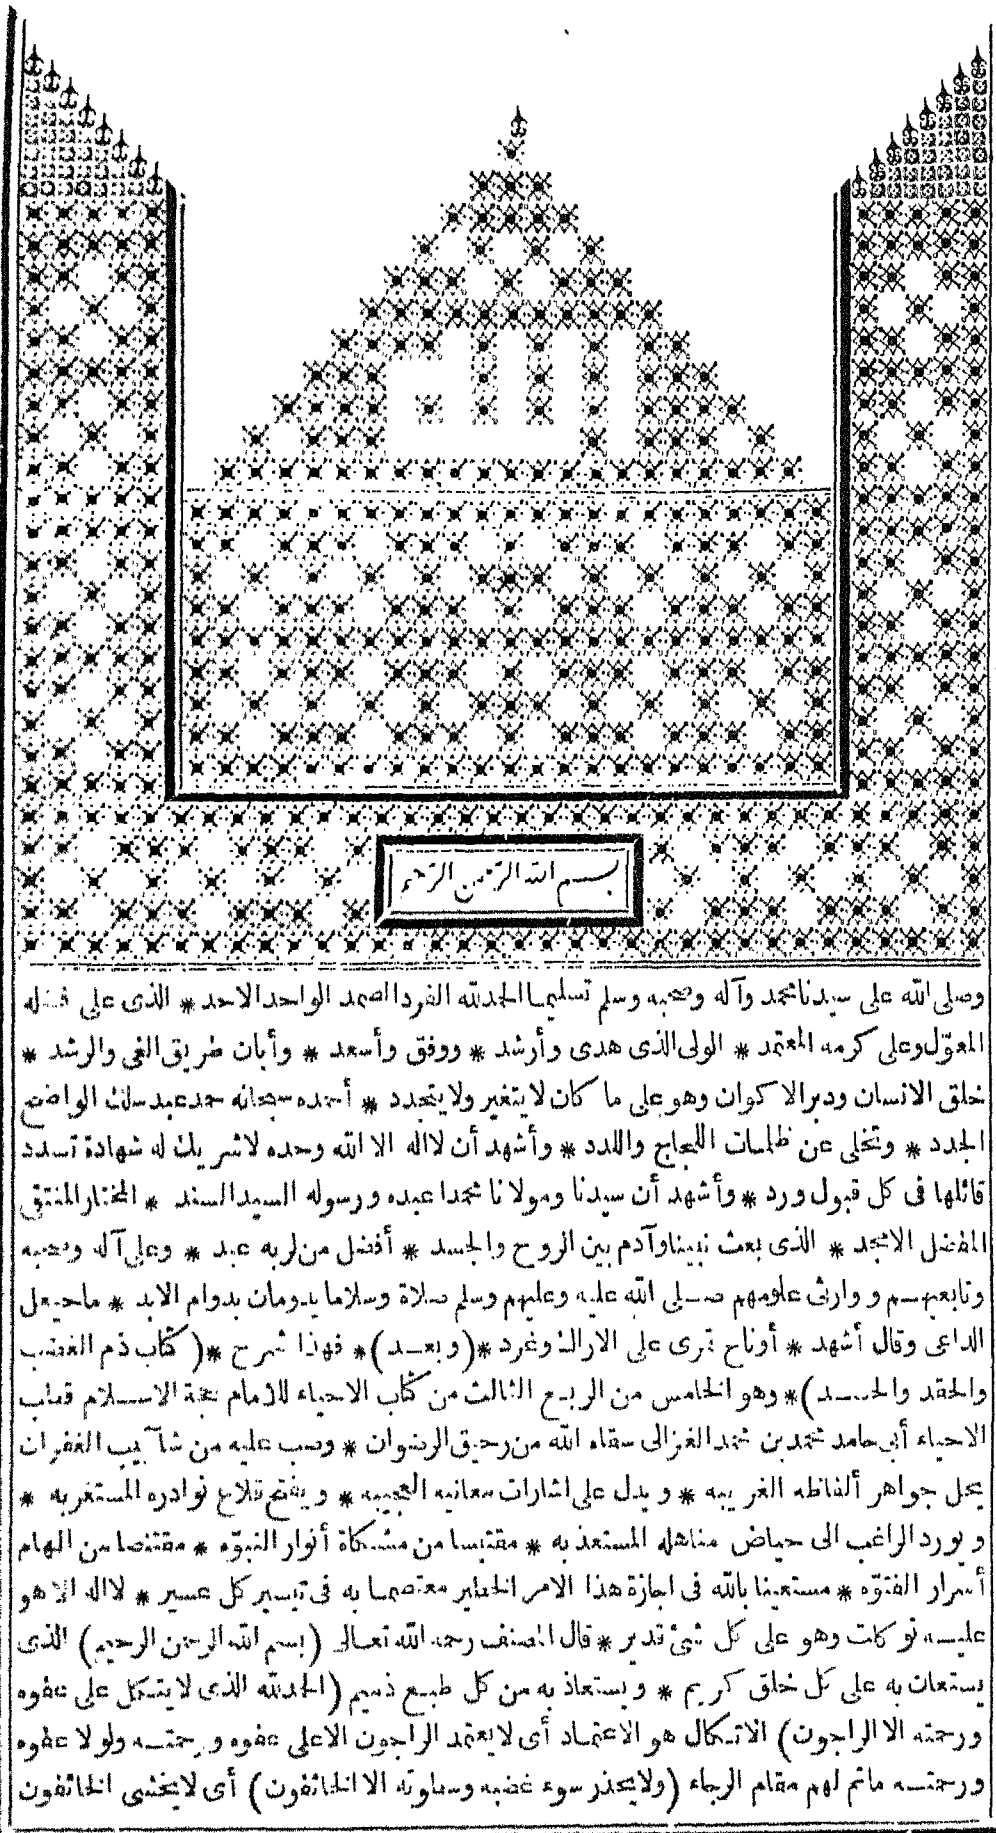 بسم الله الرحمن الرحيم
وصلى الله على سيدنا محمد وآله وصحبه وسلم تسليما الحمد لله الفرد الصمد الواحد الاحد * الذى على فضله
المعوّل وعلى كرمه المعتمد * الولى الذى هدى وأرشد * ووفق وأسعد * وأبان طريق الغى والرشد *
خلق الانسان ودبر الاكوان وهو على ما كان لا يتغير ولا يتجدد * أحمده سبحانه حمد عبد سلك الواضح
الجدد * وتخلى عن ظلمات اللجاج واللدد * وأشهد أن لا اله الا الله وحده لا شريك له شهادة تسدد
قائلها فى كل قبول ورد * وأشهد أن سيدنا ومولانا محمدا عبده ورسوله السيد السند * المختار المنتقى
المفضل الامجد * الذى بعث نبينا وآدم بين الروح والجسد * أفضل من لربه عبد * وعلى آله وصحبه
وتابعيهم ووارثى علومهم صلى الله عليه وعليهم وسلم صلاة وسلاما يدومان بدوام الابد * ما حيعل
الداعى وقال أشهد * أوناح قرى على الاراك وغرد * (وبعد) * فهذا شرح * (كتاب ذم الغضب
والحقد والحسد) * وهو الخامس من الربع الثالث من كتاب الاحياء للامام حجة الاسلام قطب
الاحياء أبى حامد محمد بن محمد الغزالى سقاه الله من رحيق الرضوان * وصب عليه من شآبيب الغفران
يحل جواهر ألفاظه الغريبه * ويدل على اشارات معانيه العجيبه * ويفتح قلاع نوادره المستغربه *
ويورد الراغب الى حياض مناهله المستعذبه * مقتبسا من مشكاة أنوار النبوّه * مقتنصا من الهام
أسرار الفتوّه * مستعينا بالله فى اجازة هذا الامر الخطير معتصما به فى تيسير كل عسير * لا اله الا هو
عليه توكلت وهو على كل شئ قدير * قال المصنف رحمه الله تعالى (بسم الله الرحمن الرحيم) الذى
يستعان به على كل خلق كريم * ويستعاذ به من كل طبع ذميم (الحمد لله الذى لا يتكل على عفوه
ورحمته الا الراجون) الاتكال هو الاعتماد أى لا يعتمد الراجون الا على عفوه ورحمته ولولا عفوه
ورحمته ما تم لهم مقام الرجاء (ولا يحذر سوء غضبه وسطوته الا الخائفون) أى لا يخشى الخائفون